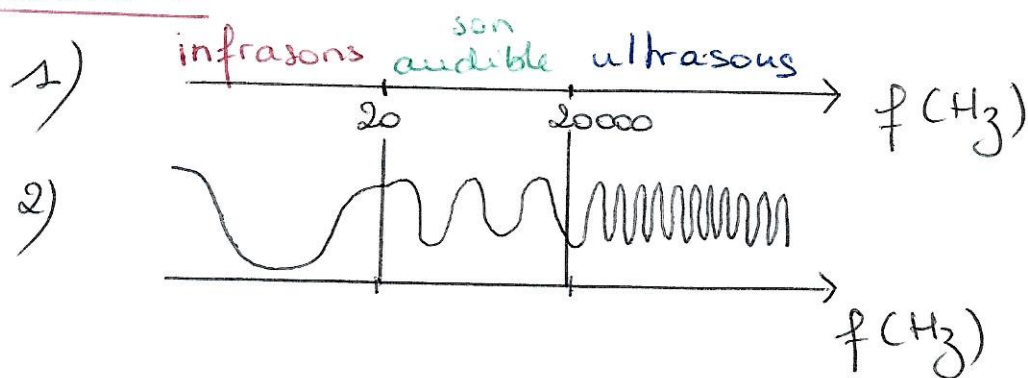 1)
infrasons son audible ultrasons
20 20000 f (Hz)
2)
f (Hz)